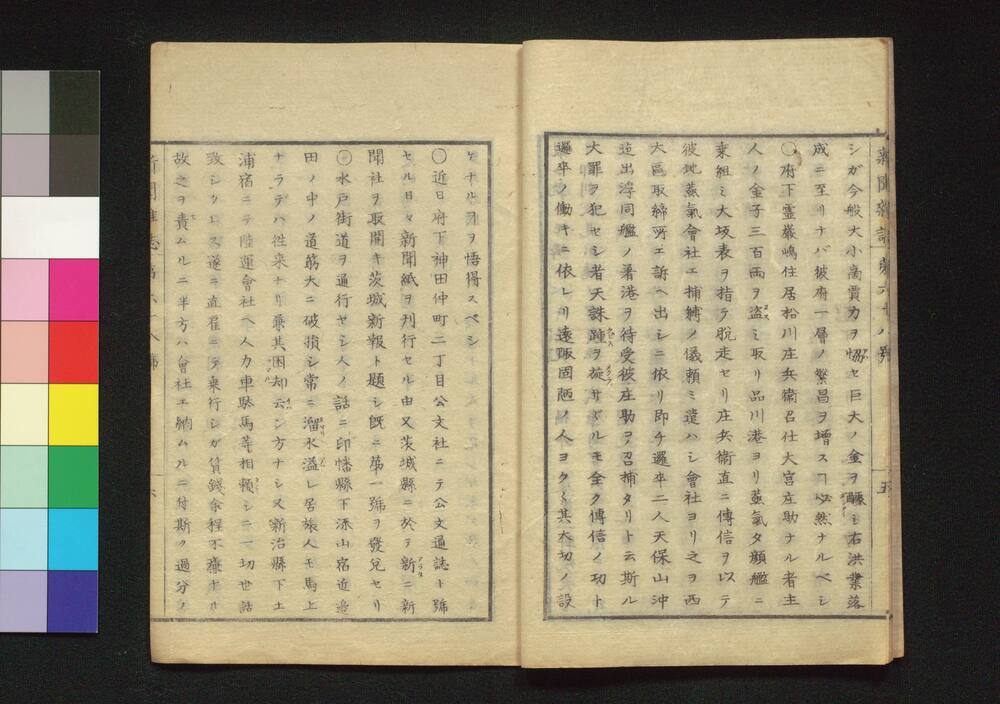 新聞雜誌 第六十八號 五
シガ今般大小商賈力ヲ協セ巨大ノ金ヲ醵シ右洪業落
成ニ至リナバ披府一層ノ繁昌ヲ増スヿ必然ナルベシ
○府下霊巌嶋住居松川庄兵衛召仕大宮庄助ナル者主
人ノ金子三百両ヲ盗ミ取リ品川港ヨリ蒸氣タ顔艦ニ
乗組ミ大坂表ヲ指テ脱走セリ庄兵衛直ニ傳信ヲ以テ
彼地蒸氣會社エ捕縛ノ儀頼ミ遣ハシ會社ヨリ之ヲ西
大區取締所エ訴ヘ出シニ依リ即チ邏卒二人天保山沖
迠出浮同艦ノ着港ヲ待受彼庄助ヲ召捕タリト云斯ル
大罪ヲ犯セシ者天誅踵ヲ旋サヾルモ全ク傳信ノ功ト
邏卒ノ働キニ依レリ遠陬固陋ノ人ヨク〱其大切ノ設
ケナル所ヲ悟得スベシ
○近日府下神田仲町二丁目公文社ニテ公文通誌ト號
セル日々新聞紙ヲ刋行セル由又茨城縣ニ於テ新ニ新
聞社ヲ取開キ茨城新報ト題シ既ニ第一號ヲ發兌セリ
○水戸街道ヲ通行セシ人ノ話ニ印幡縣下流山宿近邉
田ノ中ノ道筋大ニ破損シ常ニ溜水溢レ居旅人モ馬上
ナラデハ徃来ナリ兼其困却云ン方ナシ又新治縣下土
浦宿ニテ陸運會社ヘ人力車駄馬等相頼シニ一切世話
致シクレズ遂ニ直雇ニテ乗行シガ賃錢余程不廉ナル
故之ヲ責ムルニ半方ハ會社エ納ムルニ付斯ク過分ノ
新聞雜誌 第六十八號 六